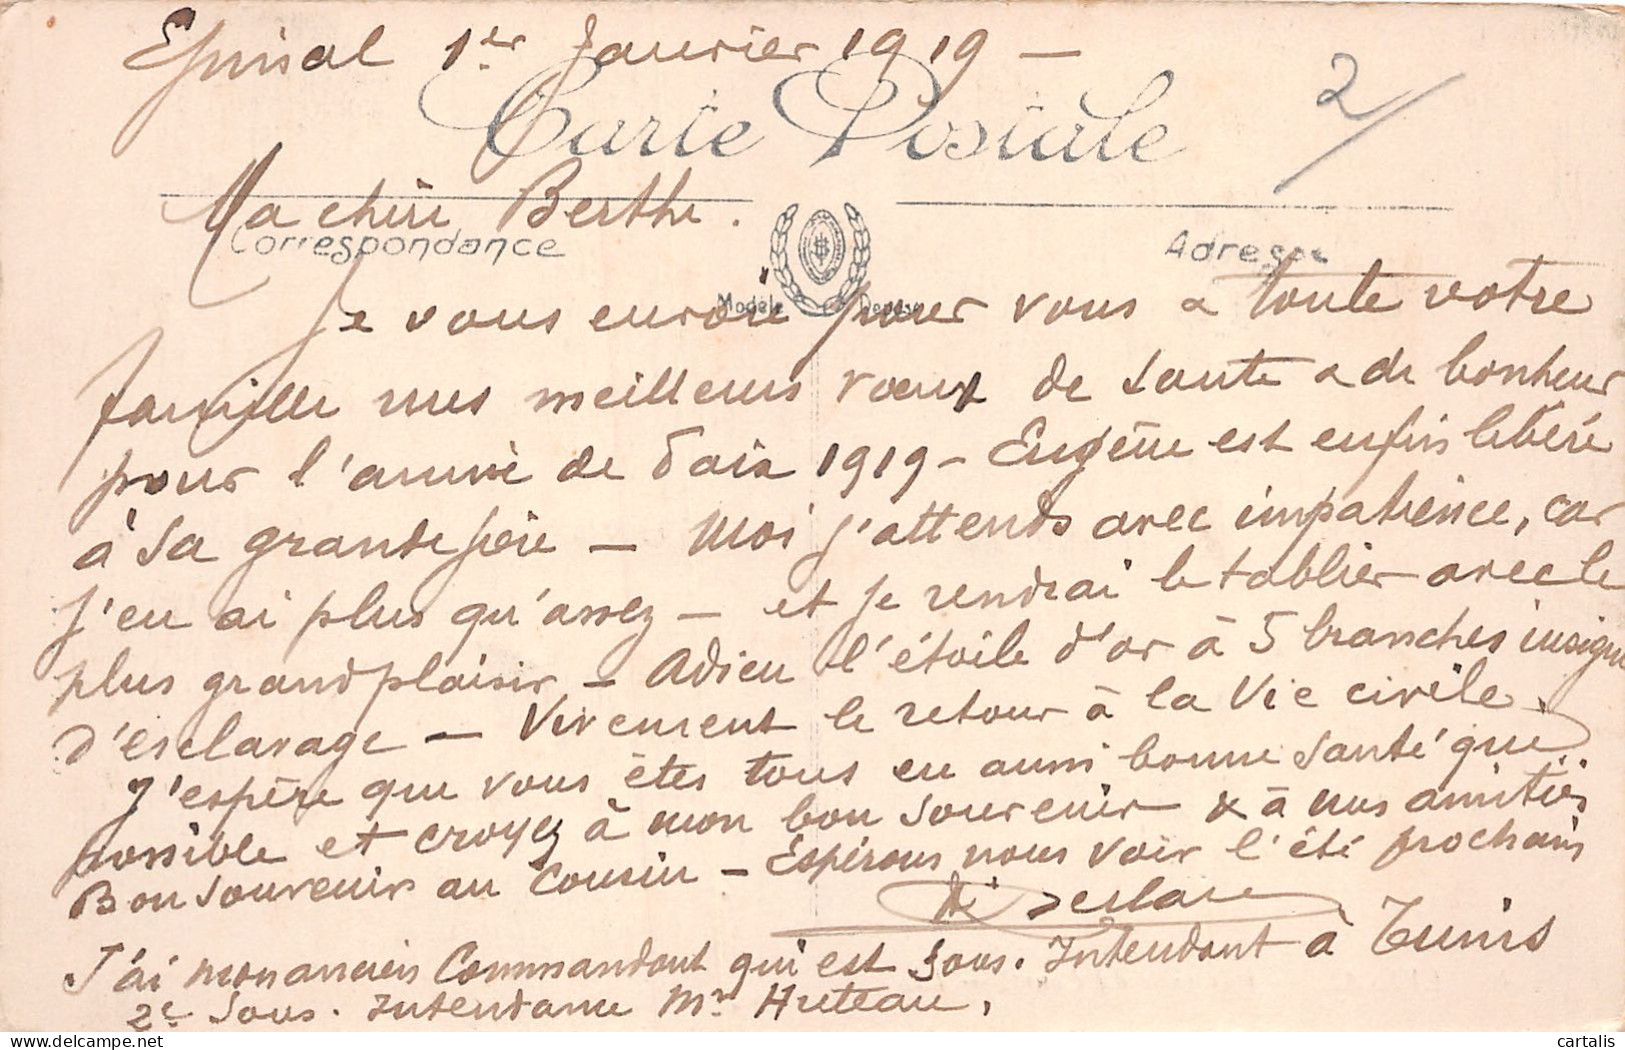 Epinal 1er Janvier 1919 —
Carte Postale
2/
Ma chère Berthe.
Correspondance
Adresse
Modèle Déposé
Je vous envoie pour vous & toute votre
famille nos meilleurs vœux de Santé & de bonheur
pour l'année de Paix 1919 — Eugène est enfin libéré
à sa grande joie — Moi j'attends avec impatience, car
j'en ai plus qu'assez — et je rendrai le tablier avec le
plus grand plaisir — Adieu l'étoile d'or à 5 branches insigne
d'esclavage — Vivement le retour à la Vie civile.
J'espère que vous êtes tous en aussi bonne Santé que
possible et croyez à mon bon Souvenir & à nos amitiés
Bon Souvenir au Cousin — Espérons nous voir l'été prochain
J'ai mon ancien Commandant qui est Sous. Intendant à Tunis
2e Sous. Intendance Mr Huteau.
cartalis
delcampe.net